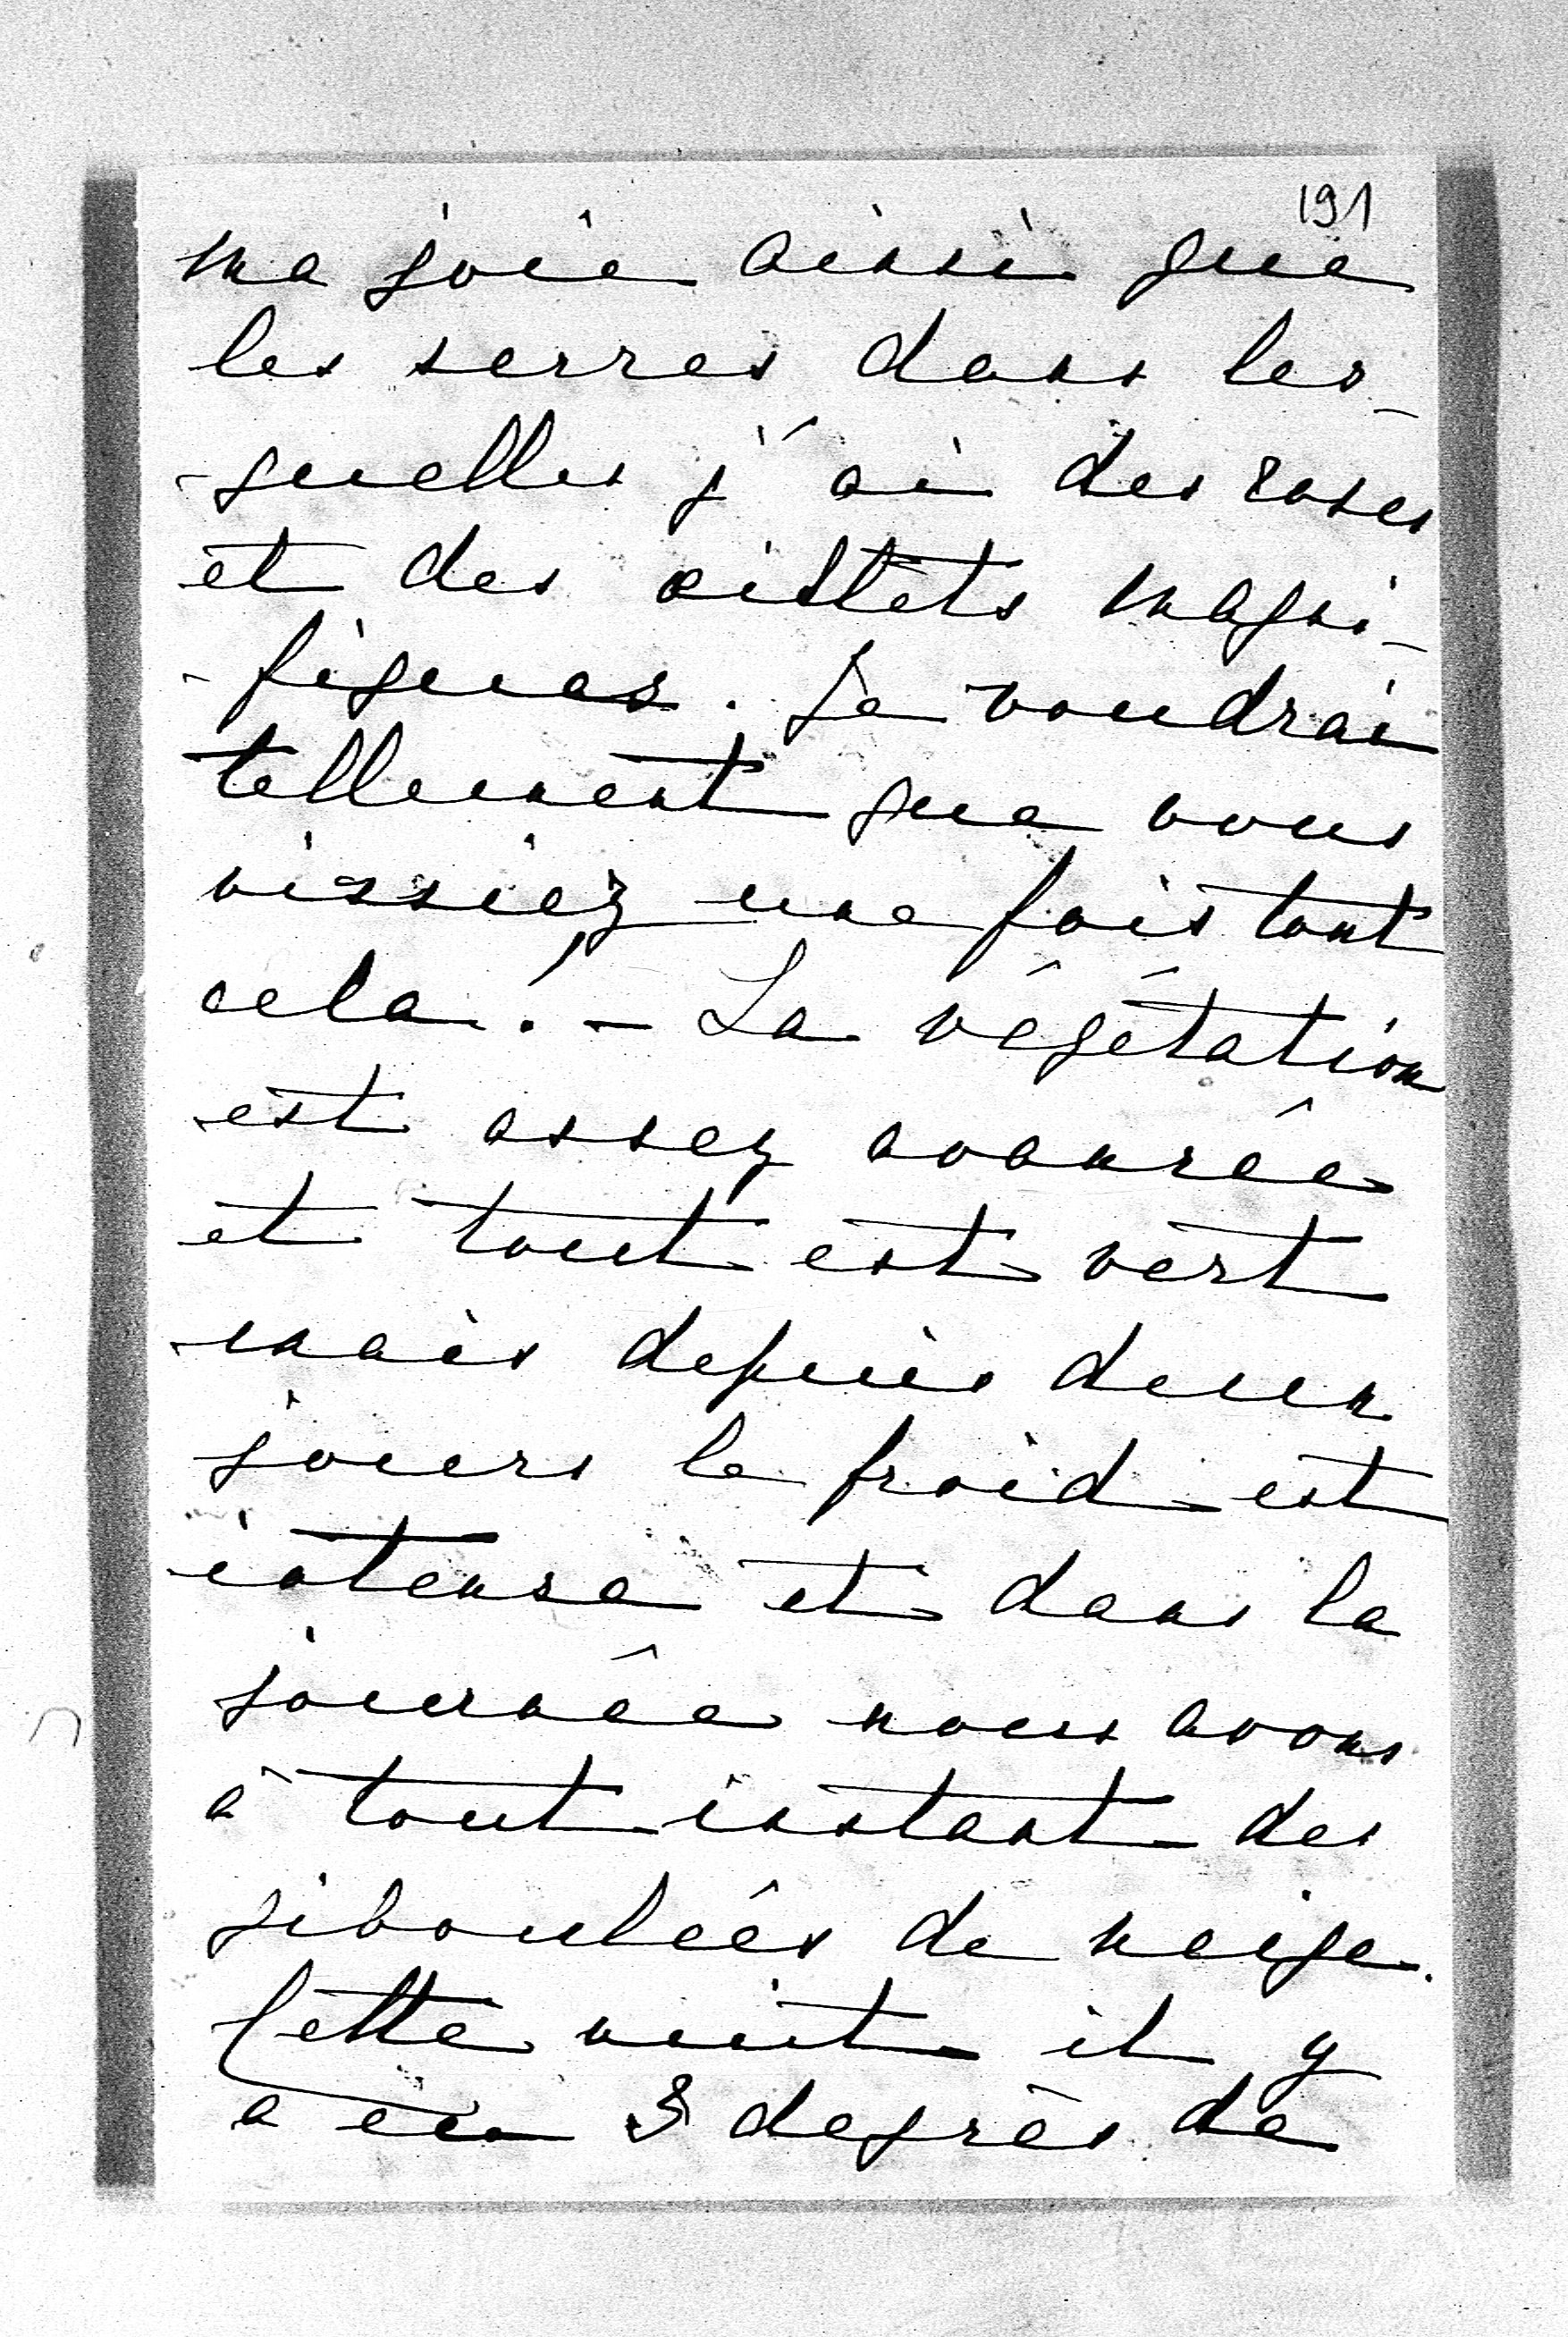 191
ma joie ainsi que
les serres dans les-
-quelles j'ai des roses
et des œillets magni-
-fiques. Je voudrai
tellement que vous
vissiez une fois tout
cela! - La végétation
est assez avancée
et tout est vert
mais depuis deux
jours le froid est
intense et dans la
journée nous avons
à tout instant des
giboulées de neige.
Cette nuit il y
a eu 3 degrès de